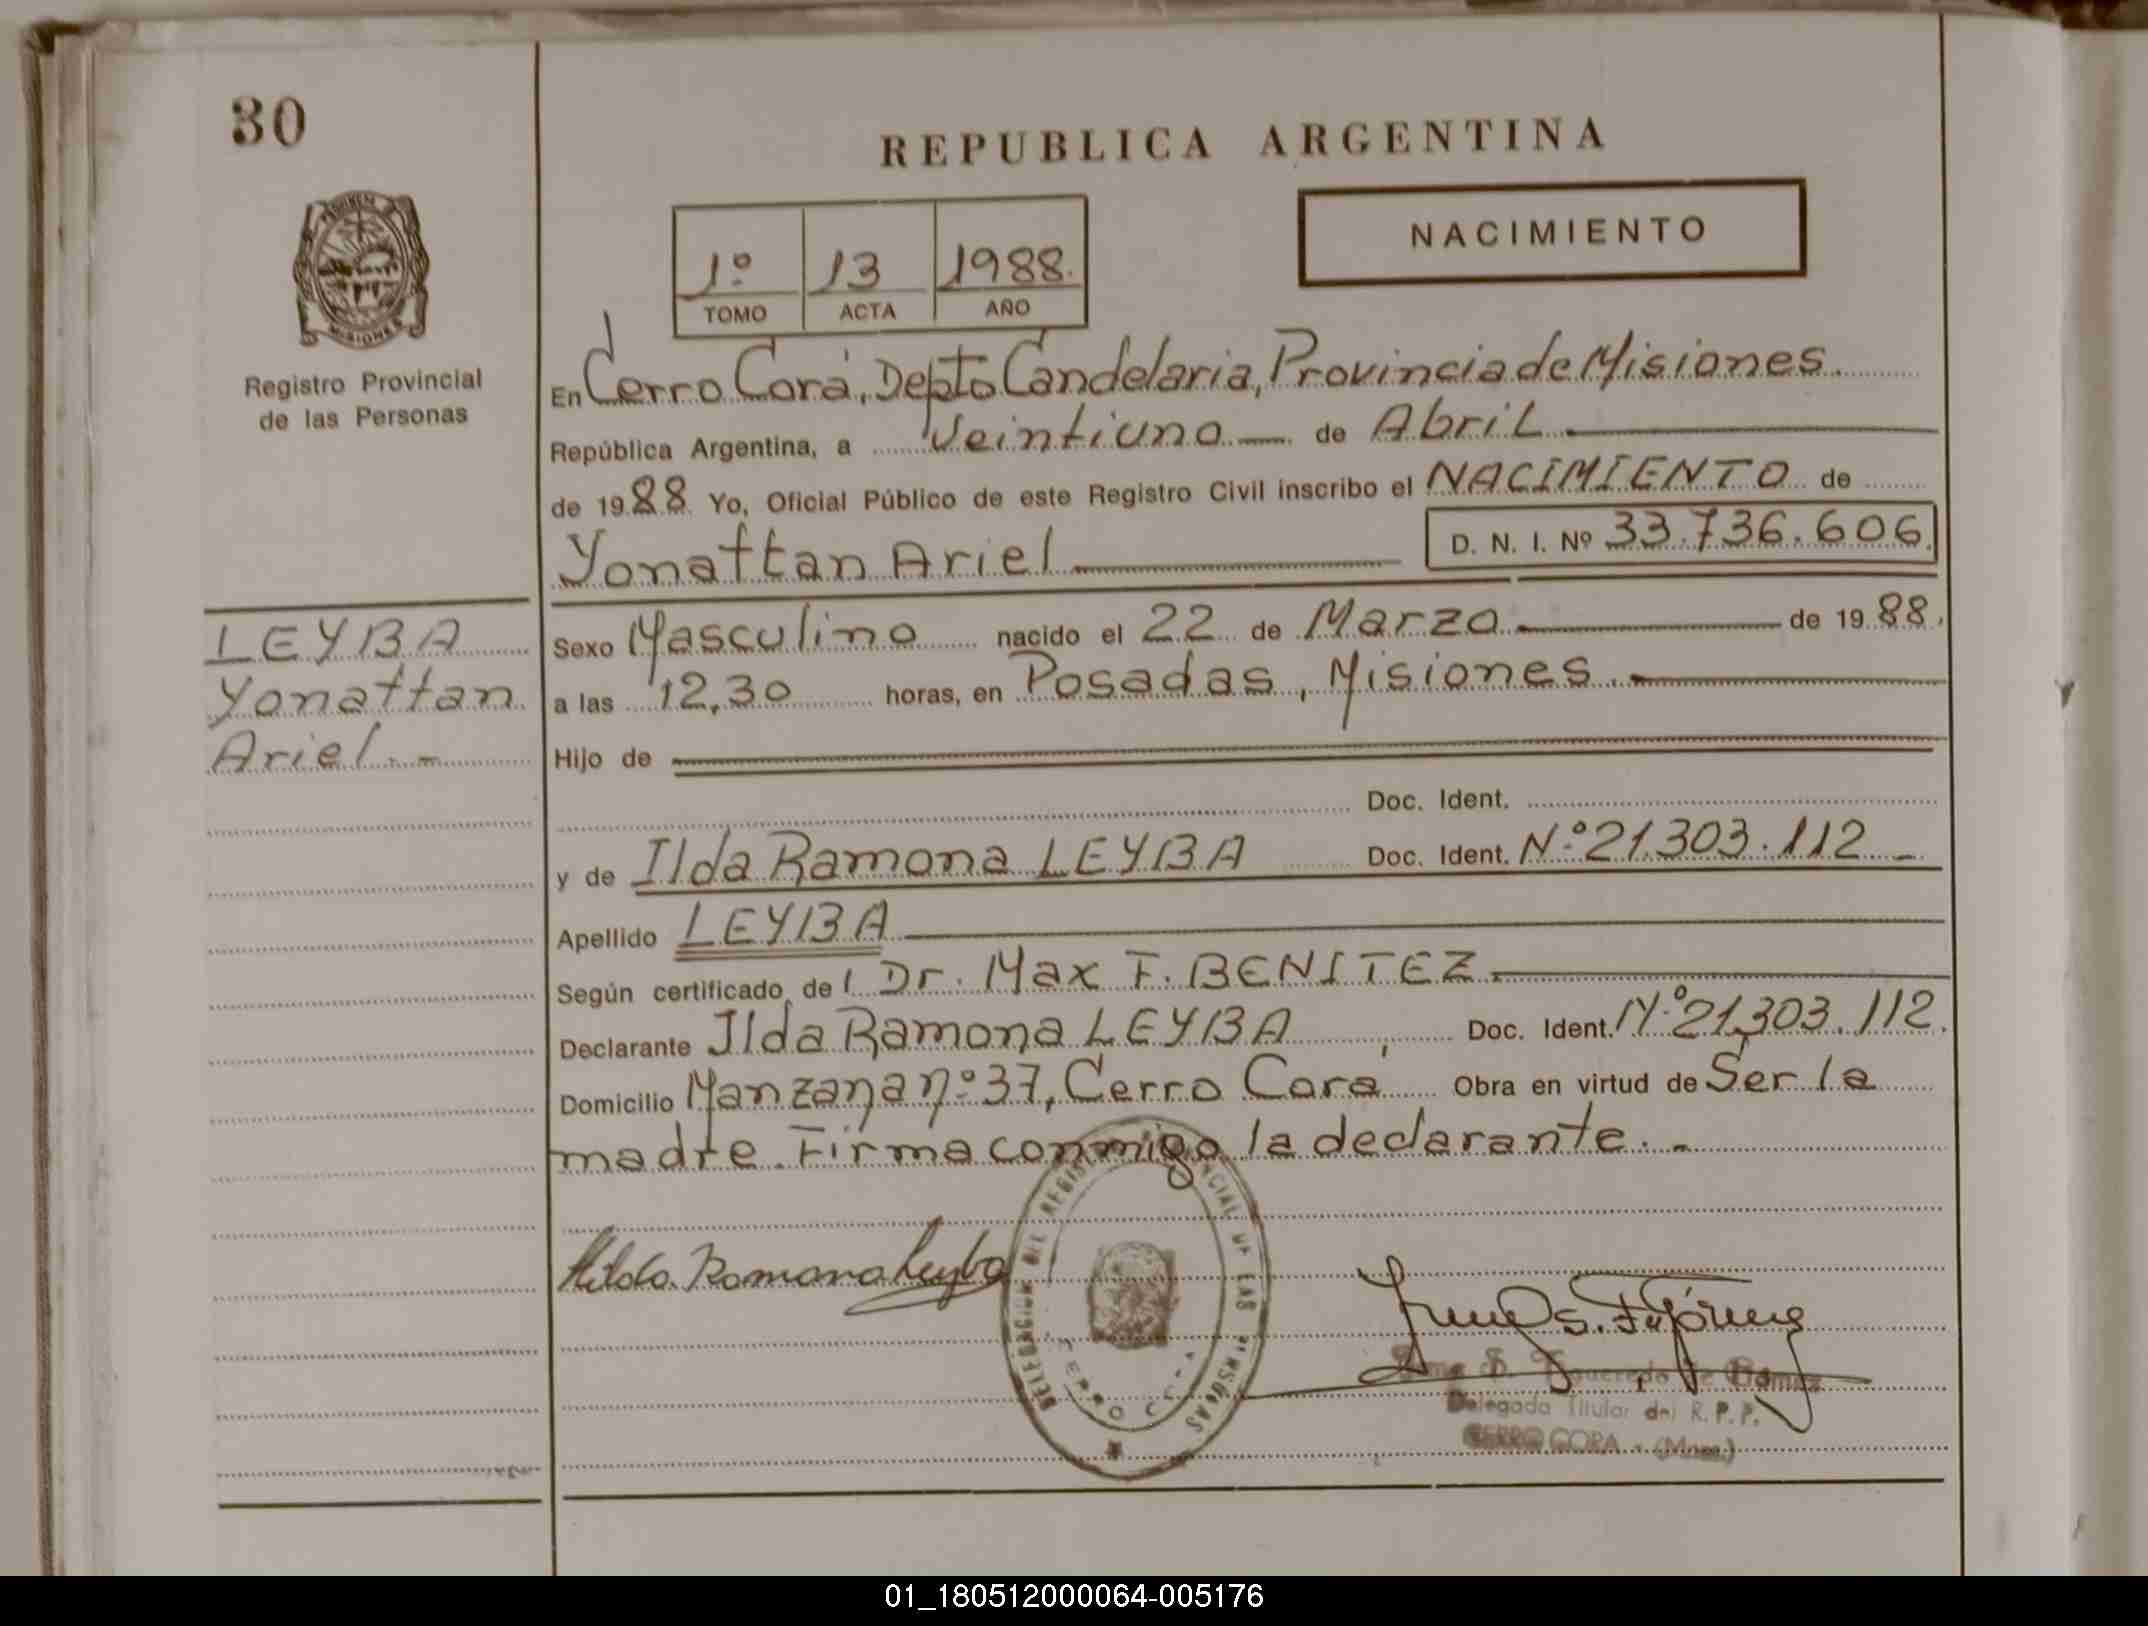 30
REPUBLICA ARGENTINA
NACIMIENTO
1º 13 1988.
TOMO ACTA AÑO
PROVINCIA MISIONES
Registro Provincial
de las Personas
En Cerro Corá, Depto Candelaria, Provincia de Misiones.
República Argentina, a Veintiuno de Abril
de 1988 Yo, Oficial Público de este Registro Civil inscribo el NACIMIENTO de
Yonattan Ariel D. N. I. Nº 33.736.606.
LEYBA
Yonattan
Ariel.-
Sexo Masculino nacido el 22 de Marzo de 1988.
a las 12,30 horas, en Posadas, Misiones.
Hijo de
Doc. Ident.
y de Ilda Ramona LEYBA Doc. Ident. Nº 21.303.112 -
Apellido LEYBA
Según certificado de l Dr. Max F. BENITEZ
Declarante Ilda Ramona LEYBA Doc. Ident. Nº 21,303.112.
Domicilio Manzana nº 37, Cerro Corá Obra en virtud de Ser la
madre. Firma conmigo la declarante.-
Hilda Ramona Leyba
DELEGACION DEL REGISTRO PROVINCIAL DE LAS PERSONAS
CERRO CORA
Delegada Titular del R. P. P.
CERRO CORA - (Mnes.)
01_180512000064-005176